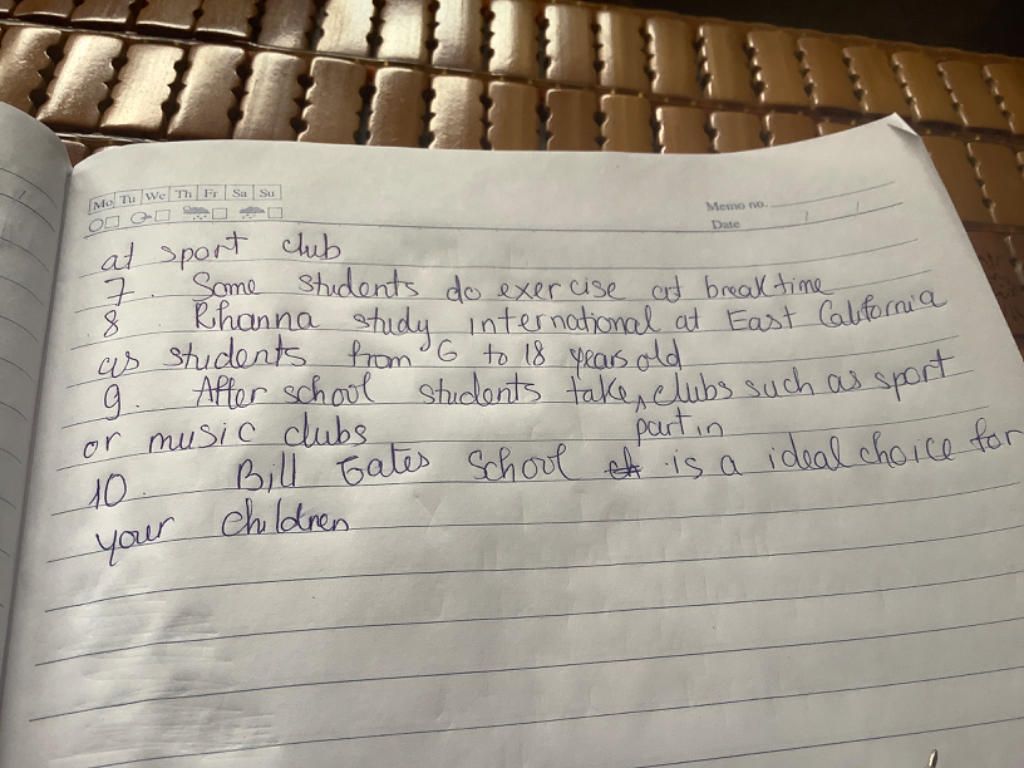 Mo Tu We Th Fr Sa Su
Memo no.
Date / /
at sport club
7. Some students do exercise at breaktime
8 Rhanna study international at East California
as students from 6 to 18 years old
9. After school students take ‸ clubs such as sport
or music clubs part in
10. Bill Gates School is a ideal choice for
your children